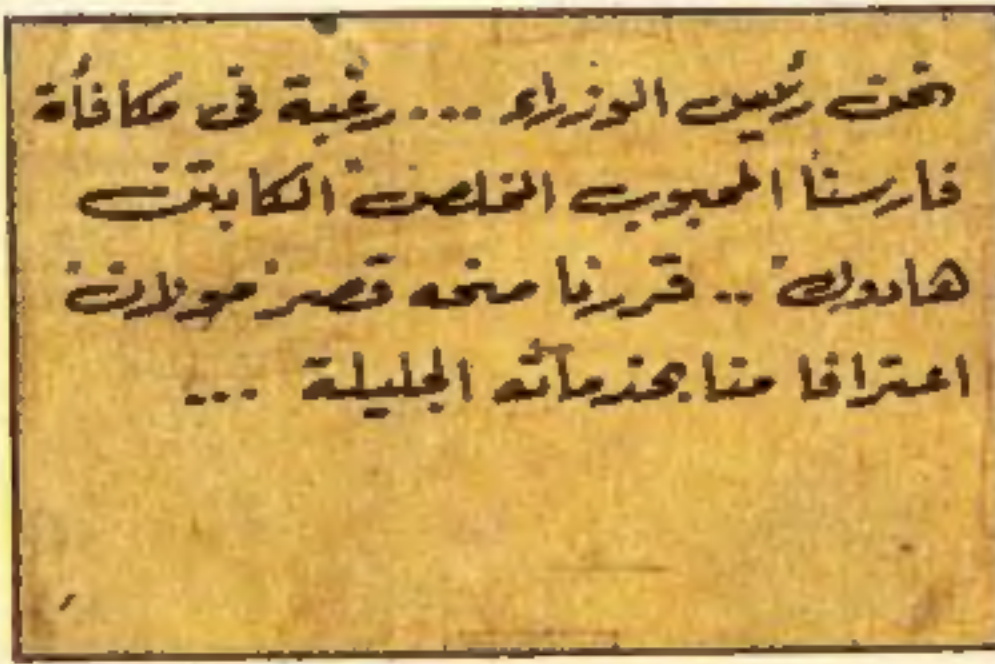 نحن رئيس الوزراء ... رغبة فى مكافأة
فارسنا المحبوب المخلص الكابتن
هادوك .. قررنا منحه قصر مولان
اعترافا منا بخدماته الجليلة ...